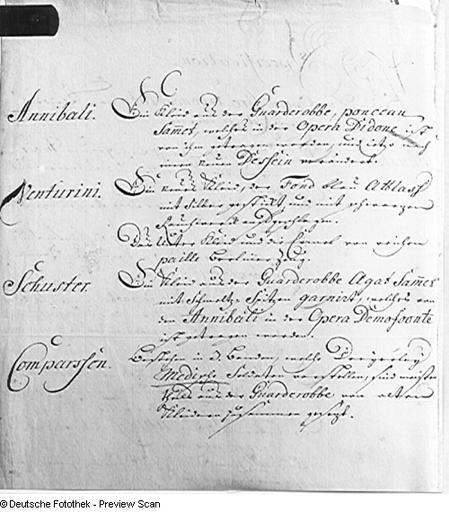 Annibali. Ein Kleid aus der Guarderobbe, ponceau
Samet, welches in der Opera Didone ist
von ihm getragen worden, und ist nach
neuen Dessein verändert.
Venturini. Ein neues Kleid, der Fond blau Atlass
mit Silber gestickt und mit schwarzen
Rauchwerk
Das Unter Kleid und die Ermel von reichen
paille Berliner Zeug.
Schuster. Ein Kleid aus der Guarderobbe Agat Samet
mit Schmeltz Spitzen garnirt, welches von
den Annibali in der Opera Demofoonte
ist getragen worden.
Comparssen. Bestehen in 2. Banden, welche
Medische Soldaten vorstellen, sind meisten
theils aus der Guarderobbe von alten
Kleidern zusammen gesezt.
©Deutsche Fotothek - Preview Scan